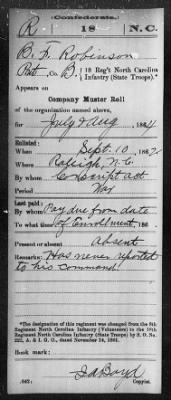 (Confederate.)
R 18 N.C.
B. F. Robinson
Pvt, Co. B, 18 Reg't North Carolina
Infantry (State Troops).*
Appears on
Company Muster Roll
of the organization named above,
for July & Aug, 1864.
Enlisted:
When Sept. 10, 1862.
Where Raleigh, N.C.
By whom Conscript act
Period War
Last paid:
By whom Pay due from date
To what time of Enrollment, 186 .
Present or absent Absent
Remarks: Has never reported
to his command.
*The designation of this regiment was changed from the 8th
Regiment North Carolina Infantry (Volunteers) to the 18th
Regiment North Carolina Infantry (State Troops) by S. O. No.
222, A. & I. G. O., dated November 14, 1861.
Book mark:
(642) J A Boyd
Copyist.